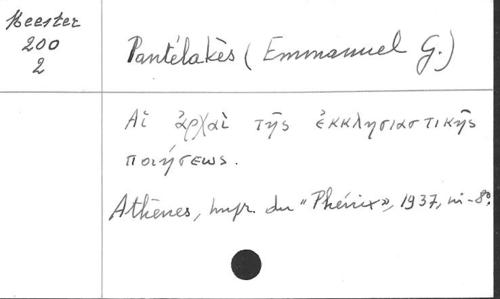 Meester
200
2
Pantélakès (Emmanuel G.)
Αἱ ἀρχαὶ τῆς ἐκκλησιαστικῆς
ποιήσεως.
Athènes, impr. du "Phénix», 1937, in-8º.